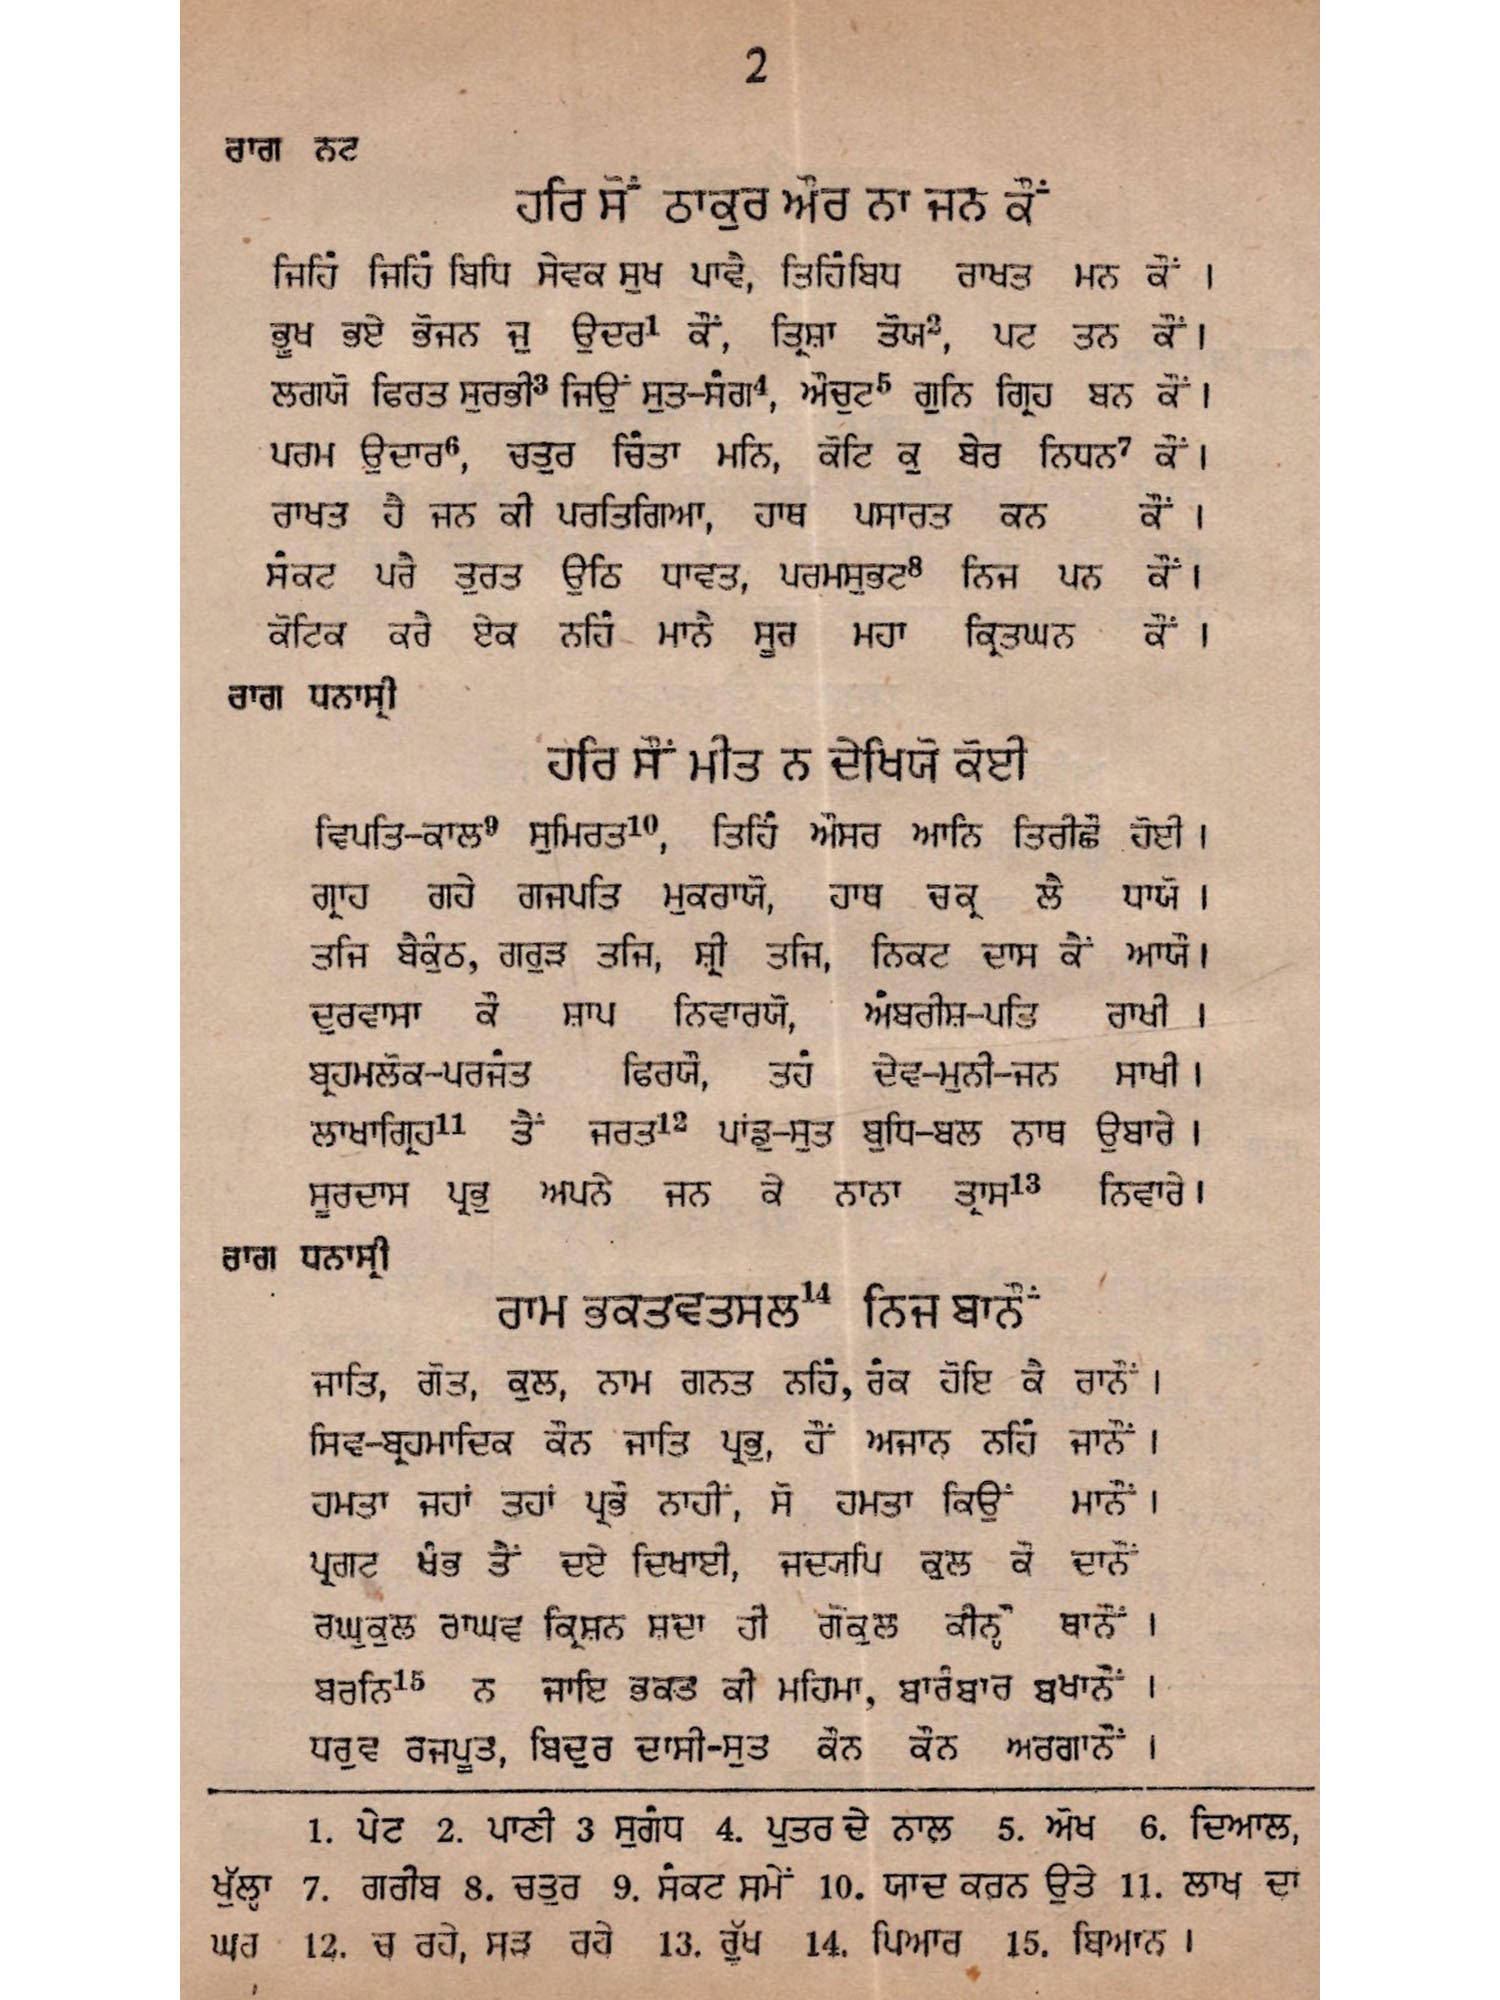 2
ਰਾਗ ਨਟ
ਹਰਿ ਸੋਂ ਠਾਕੁਰ ਔਰ ਨਾ ਜਨ ਕੌਂ
ਜਿਹਿੰ ਜਿਹਿੰ ਬਿਧਿ ਸੇਵਕ ਸੁਖ ਪਾਵੈ, ਤਿਹਿੰਬਿਧ ਰਾਖਤ ਮਨ ਕੌਂ ।
ਭੂਖ ਭਏ ਭੋਜਨ ਜੁ ਉਦਰ¹ ਕੌਂ, ਤ੍ਰਿਸ਼ਾ ਤੋਯ², ਪਟ ਤਨ ਕੌਂ ।
ਲਗਯੋ ਫਿਰਤ ਸੁਰਭੀ³ ਜਿਉਂ ਸੁਤ-ਸੰਗ⁴, ਔਚੁਟ⁵ ਗੁਨਿ ਗ੍ਰਿਹ ਬਨ ਕੌਂ ।
ਪਰਮ ਉਦਾਰ⁶, ਚਤੁਰ ਚਿੰਤਾ ਮਨਿ, ਕੋਟਿ ਕੁ ਬੇਰ ਨਿਧਨ⁷ ਕੌਂ ।
ਰਾਖਤ ਹੈ ਜਨ ਕੀ ਪਰਤਿਗਿਆ, ਹਾਥ ਪਸਾਰਤ ਕਨ ਕੌਂ ।
ਸੰਕਟ ਪਰੈ ਤੁਰਤ ਉਠਿ ਧਾਵਤ, ਪਰਮਸੁਭਟ⁸ ਨਿਜ ਪਨ ਕੌਂ ।
ਕੋਟਿਕ ਕਰੈ ਏਕ ਨਹਿੰ ਮਾਨੈ ਸੂਰ ਮਹਾ ਕ੍ਰਿਤਘਨ ਕੌਂ ।
ਰਾਗ ਧਨਾਸ੍ਰੀ
ਹਰਿ ਸੌਂ ਮੀਤ ਨ ਦੇਖਿਯੋ ਕੋਈ
ਵਿਪਤਿ-ਕਾਲ⁹ ਸੁਮਿਰਤ¹⁰, ਤਿਹਿੰ ਔਸਰ ਆਨਿ ਤਿਰੀਛੌ ਹੋਈ ।
ਗ੍ਰਾਹ ਗਹੇ ਗਜਪਤਿ ਮੁਕਰਾਯੋ, ਹਾਥ ਚਕ੍ਰ ਲੈ ਧਾਯੋ ।
ਤਜਿ ਬੈਕੁੰਠ, ਗਰੁੜ ਤਜਿ, ਸ਼੍ਰੀ ਤਜਿ, ਨਿਕਟ ਦਾਸ ਕੈਂ ਆਯੌ ।
ਦੁਰਵਾਸਾ ਕੌ ਸ਼ਾਪ ਨਿਵਾਰਯੋ, ਅੰਬਰੀਸ਼-ਪਤਿ ਰਾਖੀ ।
ਬ੍ਰਹਮਲੋਕ-ਪਰਜੰਤ ਫਿਰਯੌ, ਤਹੰ ਦੇਵ-ਮੁਨੀ-ਜਨ ਸਾਖੀ ।
ਲਾਖਾਗ੍ਰਿਹ¹¹ ਤੈਂ ਜਰਤ¹² ਪਾਂਡੁ-ਸੁਤ ਬੁਧਿ-ਬਲ ਨਾਥ ਉਬਾਰੇ ।
ਸੂਰਦਾਸ ਪ੍ਰਭੁ ਅਪਨੇ ਜਨ ਕੇ ਨਾਨਾ ਤ੍ਰਾਸ¹³ ਨਿਵਾਰੇ ।
ਰਾਗ ਧਨਾਸ੍ਰੀ
ਰਾਮ ਭਕਤਵਤਸਲ¹⁴ ਨਿਜ ਬਾਨੌਂ
ਜਾਤਿ, ਗੋਤ, ਕੁਲ, ਨਾਮ ਗਨਤ ਨਹਿੰ, ਰੰਕ ਹੋਇ ਕੈ ਰਾਨੌਂ ।
ਸਿਵ-ਬ੍ਰਹਮਾਦਿਕ ਕੌਨ ਜਾਤਿ ਪ੍ਰਭੁ, ਹੌਂ ਅਜਾਨ ਨਹਿੰ ਜਾਨੌਂ ।
ਹਮਤਾ ਜਹਾਂ ਤਹਾਂ ਪ੍ਰਭੌ ਨਾਹੀਂ, ਸੋ ਹਮਤਾ ਕਿਉਂ ਮਾਨੌਂ ।
ਪ੍ਰਗਟ ਖੰਭ ਤੈਂ ਦਏ ਦਿਖਾਈ, ਜਦ੍ਯਪਿ ਕੁਲ ਕੌ ਦਾਨੌਂ
ਰਘੁਕੁਲ ਰਾਘਵ ਕ੍ਰਿਸ਼ਨ ਸ਼ਦਾ ਹੀ ਗੋਕੁਲ ਕੀਨ੍ਹੌ ਥਾਨੌਂ ।
ਬਰਨਿ¹⁵ ਨ ਜਾਇ ਭਕਤ ਕੀ ਮਹਿਮਾ, ਬਾਰੰਬਾਰ ਬਖਾਨੌਂ ।
ਧਰੁਵ ਰਜਪੂਤ, ਬਿਦੁਰ ਦਾਸੀ-ਸੁਤ ਕੌਨ ਕੌਨ ਅਰਗਾਨੌਂ ।
1. ਪੇਟ 2. ਪਾਣੀ 3 ਸੁਗੰਧ 4. ਪੁਤਰ ਦੇ ਨਾਲ 5. ਔਖ 6. ਦਿਆਲ,
ਖੁੱਲ੍ਹਾ 7. ਗਰੀਬ 8. ਚਤੁਰ 9. ਸੰਕਟ ਸਮੇਂ 10. ਯਾਦ ਕਰਨ ਉਤੇ 11. ਲਾਖ ਦਾ
ਘਰ 12. ਚ ਰਹੇ, ਸੜ ਰਹੇ 13. ਰੁੱਖ 14. ਪਿਆਰ 15. ਬਿਆਨ ।